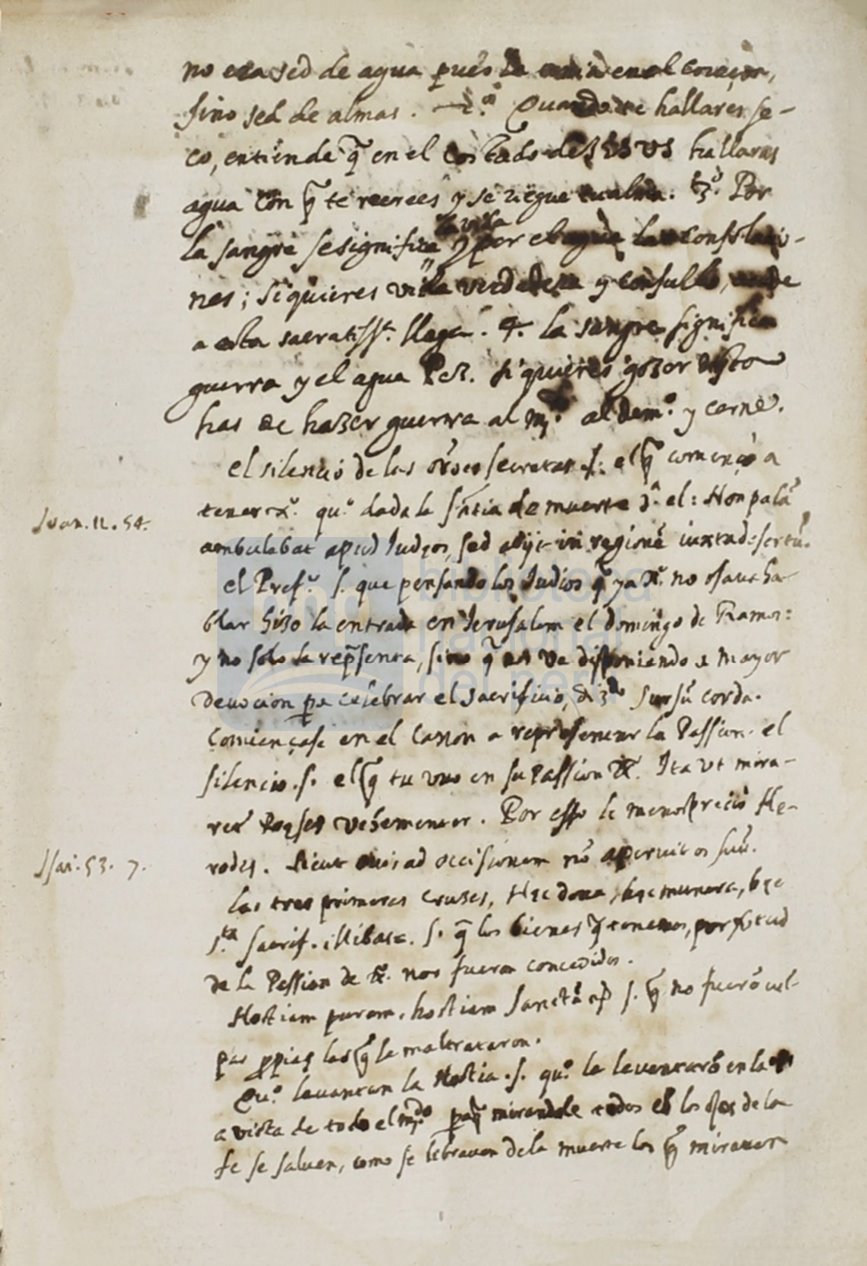 no era sed de agua pues la tenia en el coraçon,
sino sed de almas. — 2.ª Quando te hallares se-
co, entiende q̃ en el costado de IESVS hallaras
agua con q̃ te recrees y se riegue tu alma. 3.º Por
la sangre se significa la vida y por el agua las consolacio-
nes; si quieres vida verdadera y consuelo, acude
a esta sacratiss.ª llaga. 4. la sangre significa
guerra y el agua Paz. si quieres gozar desta
has de hazer guerra al m.º al Dem.º y carne.
el silencio de las orõnes secretas .s. el q̃ començó a
tener x.º qu.º dada la s̃ntia de muerte d.ª el: Non palã
Ioan. 11. 54.
ambulabat apud Iudęos, sed abijt in regionẽ iuxta desertũ.
el Pref.º s. que pensando los Iudios q̃ ya X.º no osaua ha-
blar hizo la entrada en Ierusalem el domingo de Ramos:
y no solo la rep̃senta, sino q̃ nos va disponiendo a mayor
deuocion pa celebrar el sacrificio, diz.do Sursũ corda.
Comiençase en el Canon a representar la Passion. el
silencio .s. el q̃ tuuo en su Passion X.º Ita vt mira-
retˀ Pręses vehementer. Por esso le menospreció He-
Isai. 53. 7.
rodes. Sicut ouis ad occisionem nõ aperuit os suũ.
Las tres primeras Cruzes, Hęc dona, hęc munera, hęc
s.ta sacrif. illibata. s. q̃ los bienes q̃ tenemos, por virtud
de la Passion de X.º nos fueron concedidos.
Hostiam puram, hostiam sanctã s. q̃ no fuerõ cul-
pas propias las q̃ le maltrataron.
Qu.º leuantan la Hostia .s. qu.º le leuantarõ en la
a vista de todo el m.do paq̃ mirandole todos cõ los ojos de la
fe se saluen, como se librauan de la muerte los q̃ mirauan